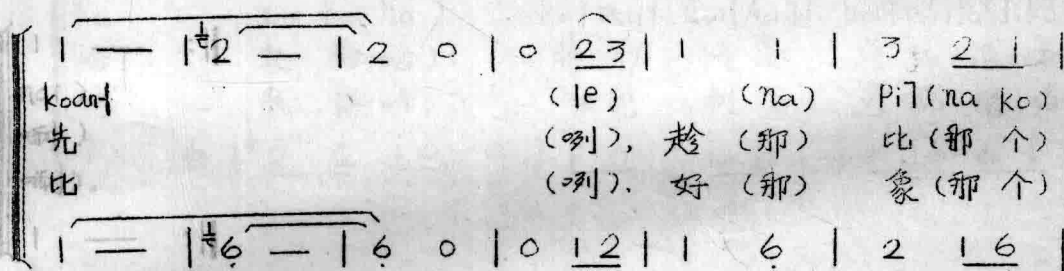 1 — | 2 — | 2 0 | 0 2 3 | 1 1 | 3 2 1 |
koan˧ (le) (na) Pi˥(na ko)
先 (咧), 趁 (那) 比 (那 个)
比 (咧). 好 (那) 象 (那 个)
1 — | 6̣ — | 6̣ 0 | 0 1 2 | 1 6̣ | 2 1 6̣ |